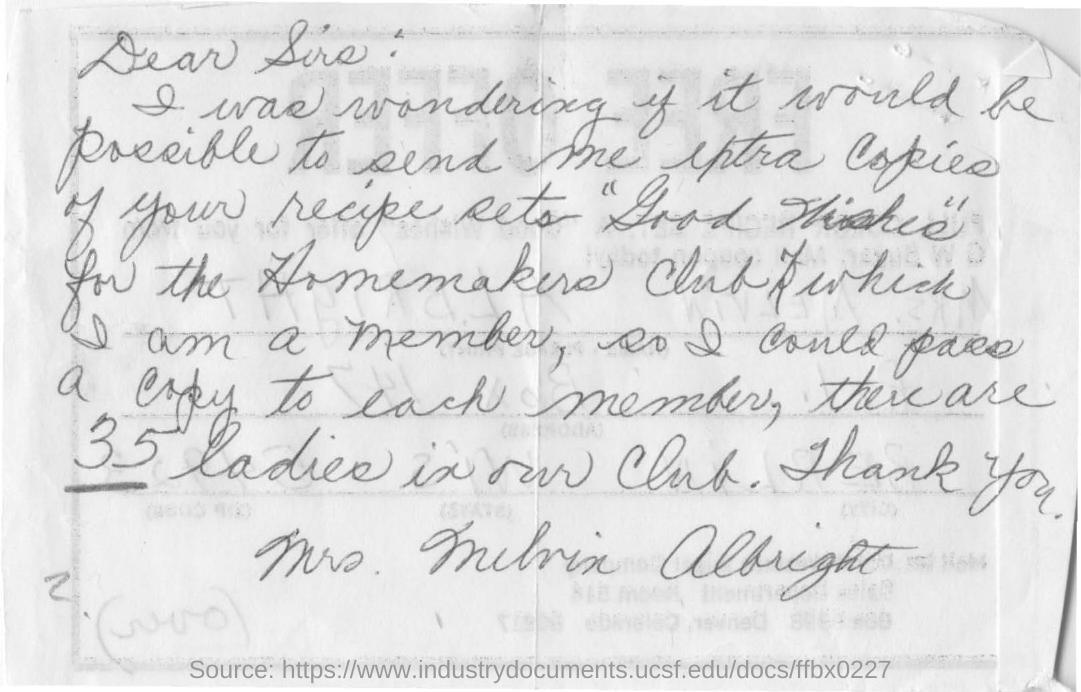 Dear Sirs:
I was wondering if it would be
possible to send me extra copies
of your recipe sets "Good Wishes"
for the Homemakers Club which
I am a member, so I could pass
a copy to each member, there are
35 ladies in our Club. Thank you.
Mrs. Melvin Albright
2.
Source: https://www.industrydocuments.ucsf.edu/docs/ffbx0227